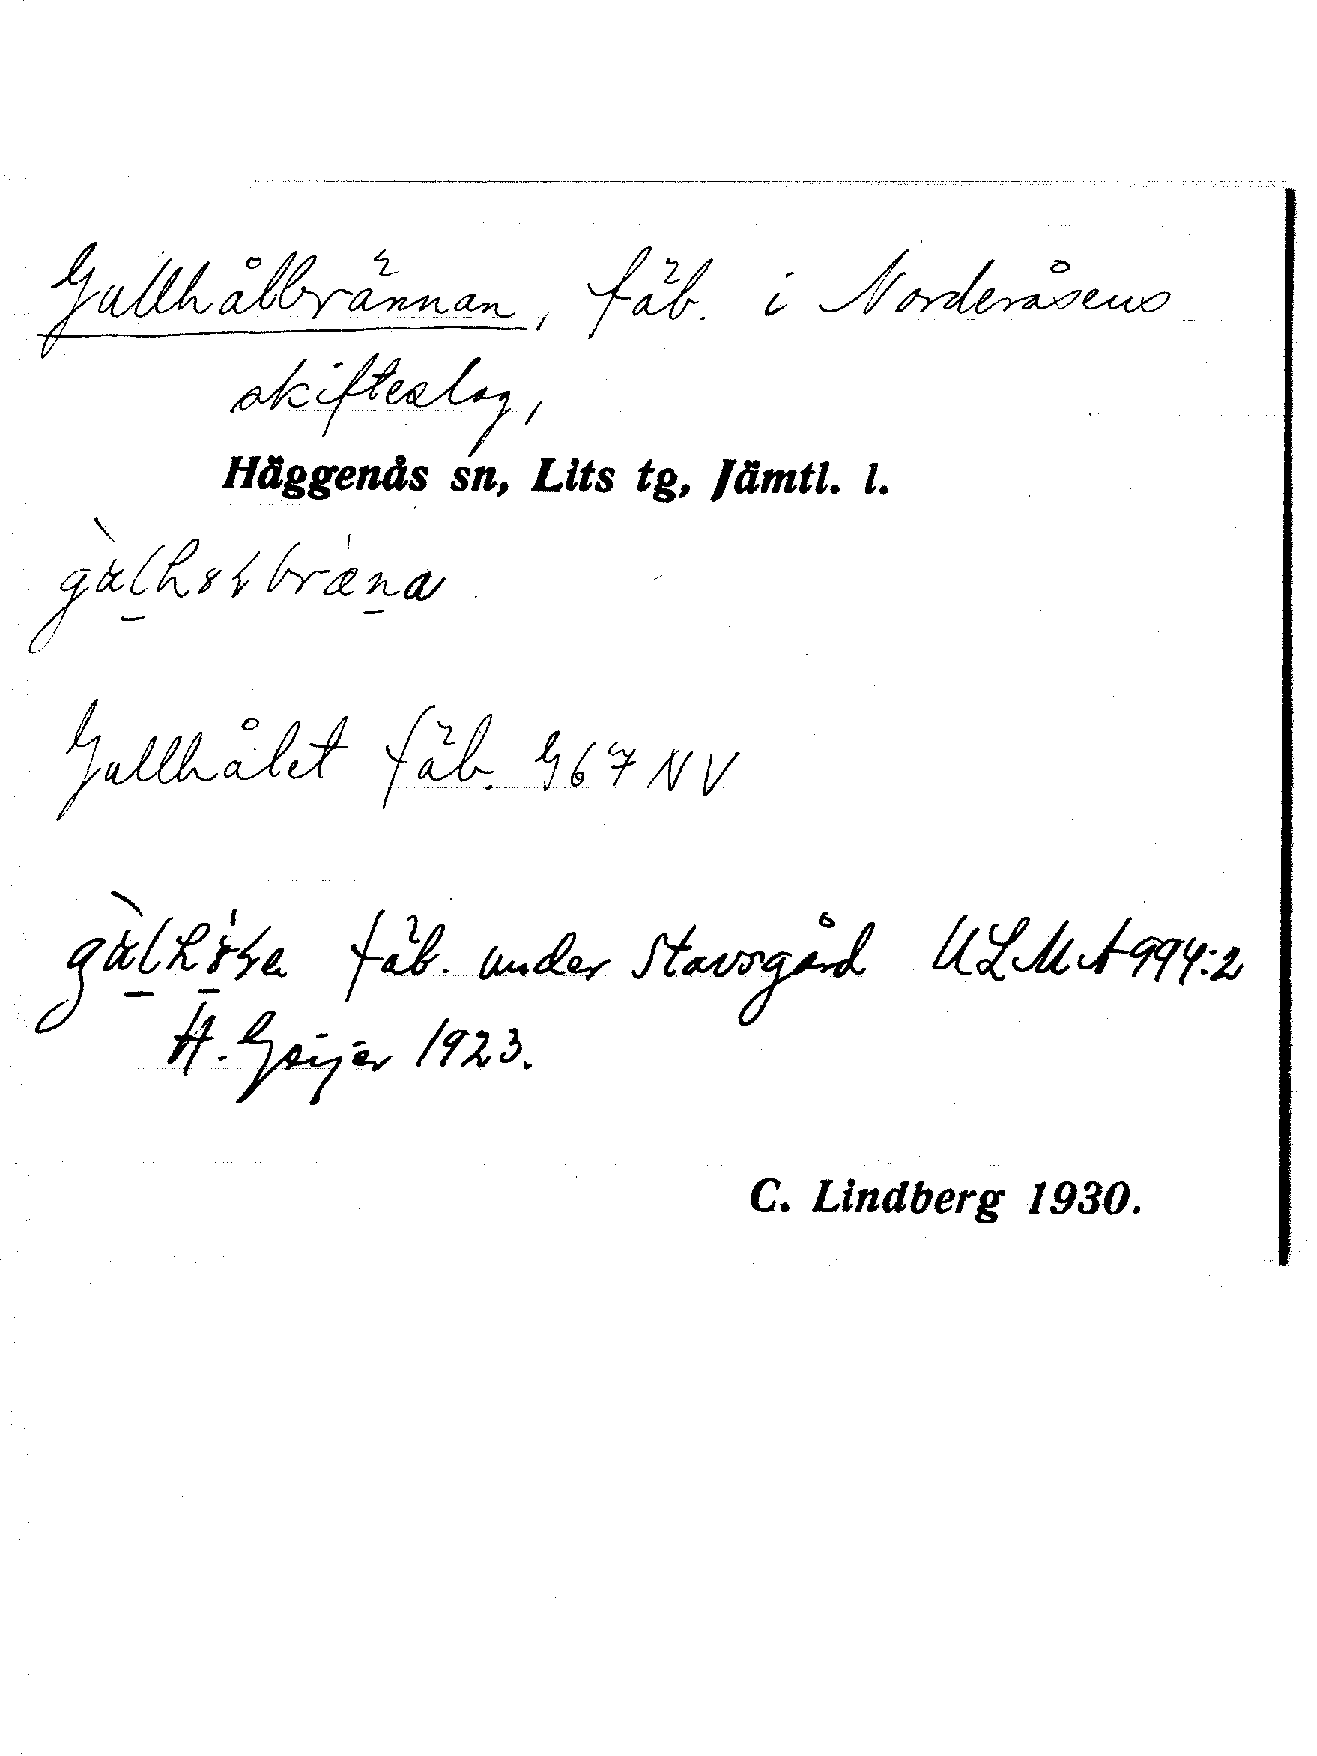 Gullhålbrännan, fäb. i Norderåsens
skifteslag,
Häggenås sn, Lits tg, Jämtl. l.
Gullhålet fäb. G67NV
fäb. under Stavsgård ULMA 994:2
H. Geijer 1923.
C. Lindberg 1930.